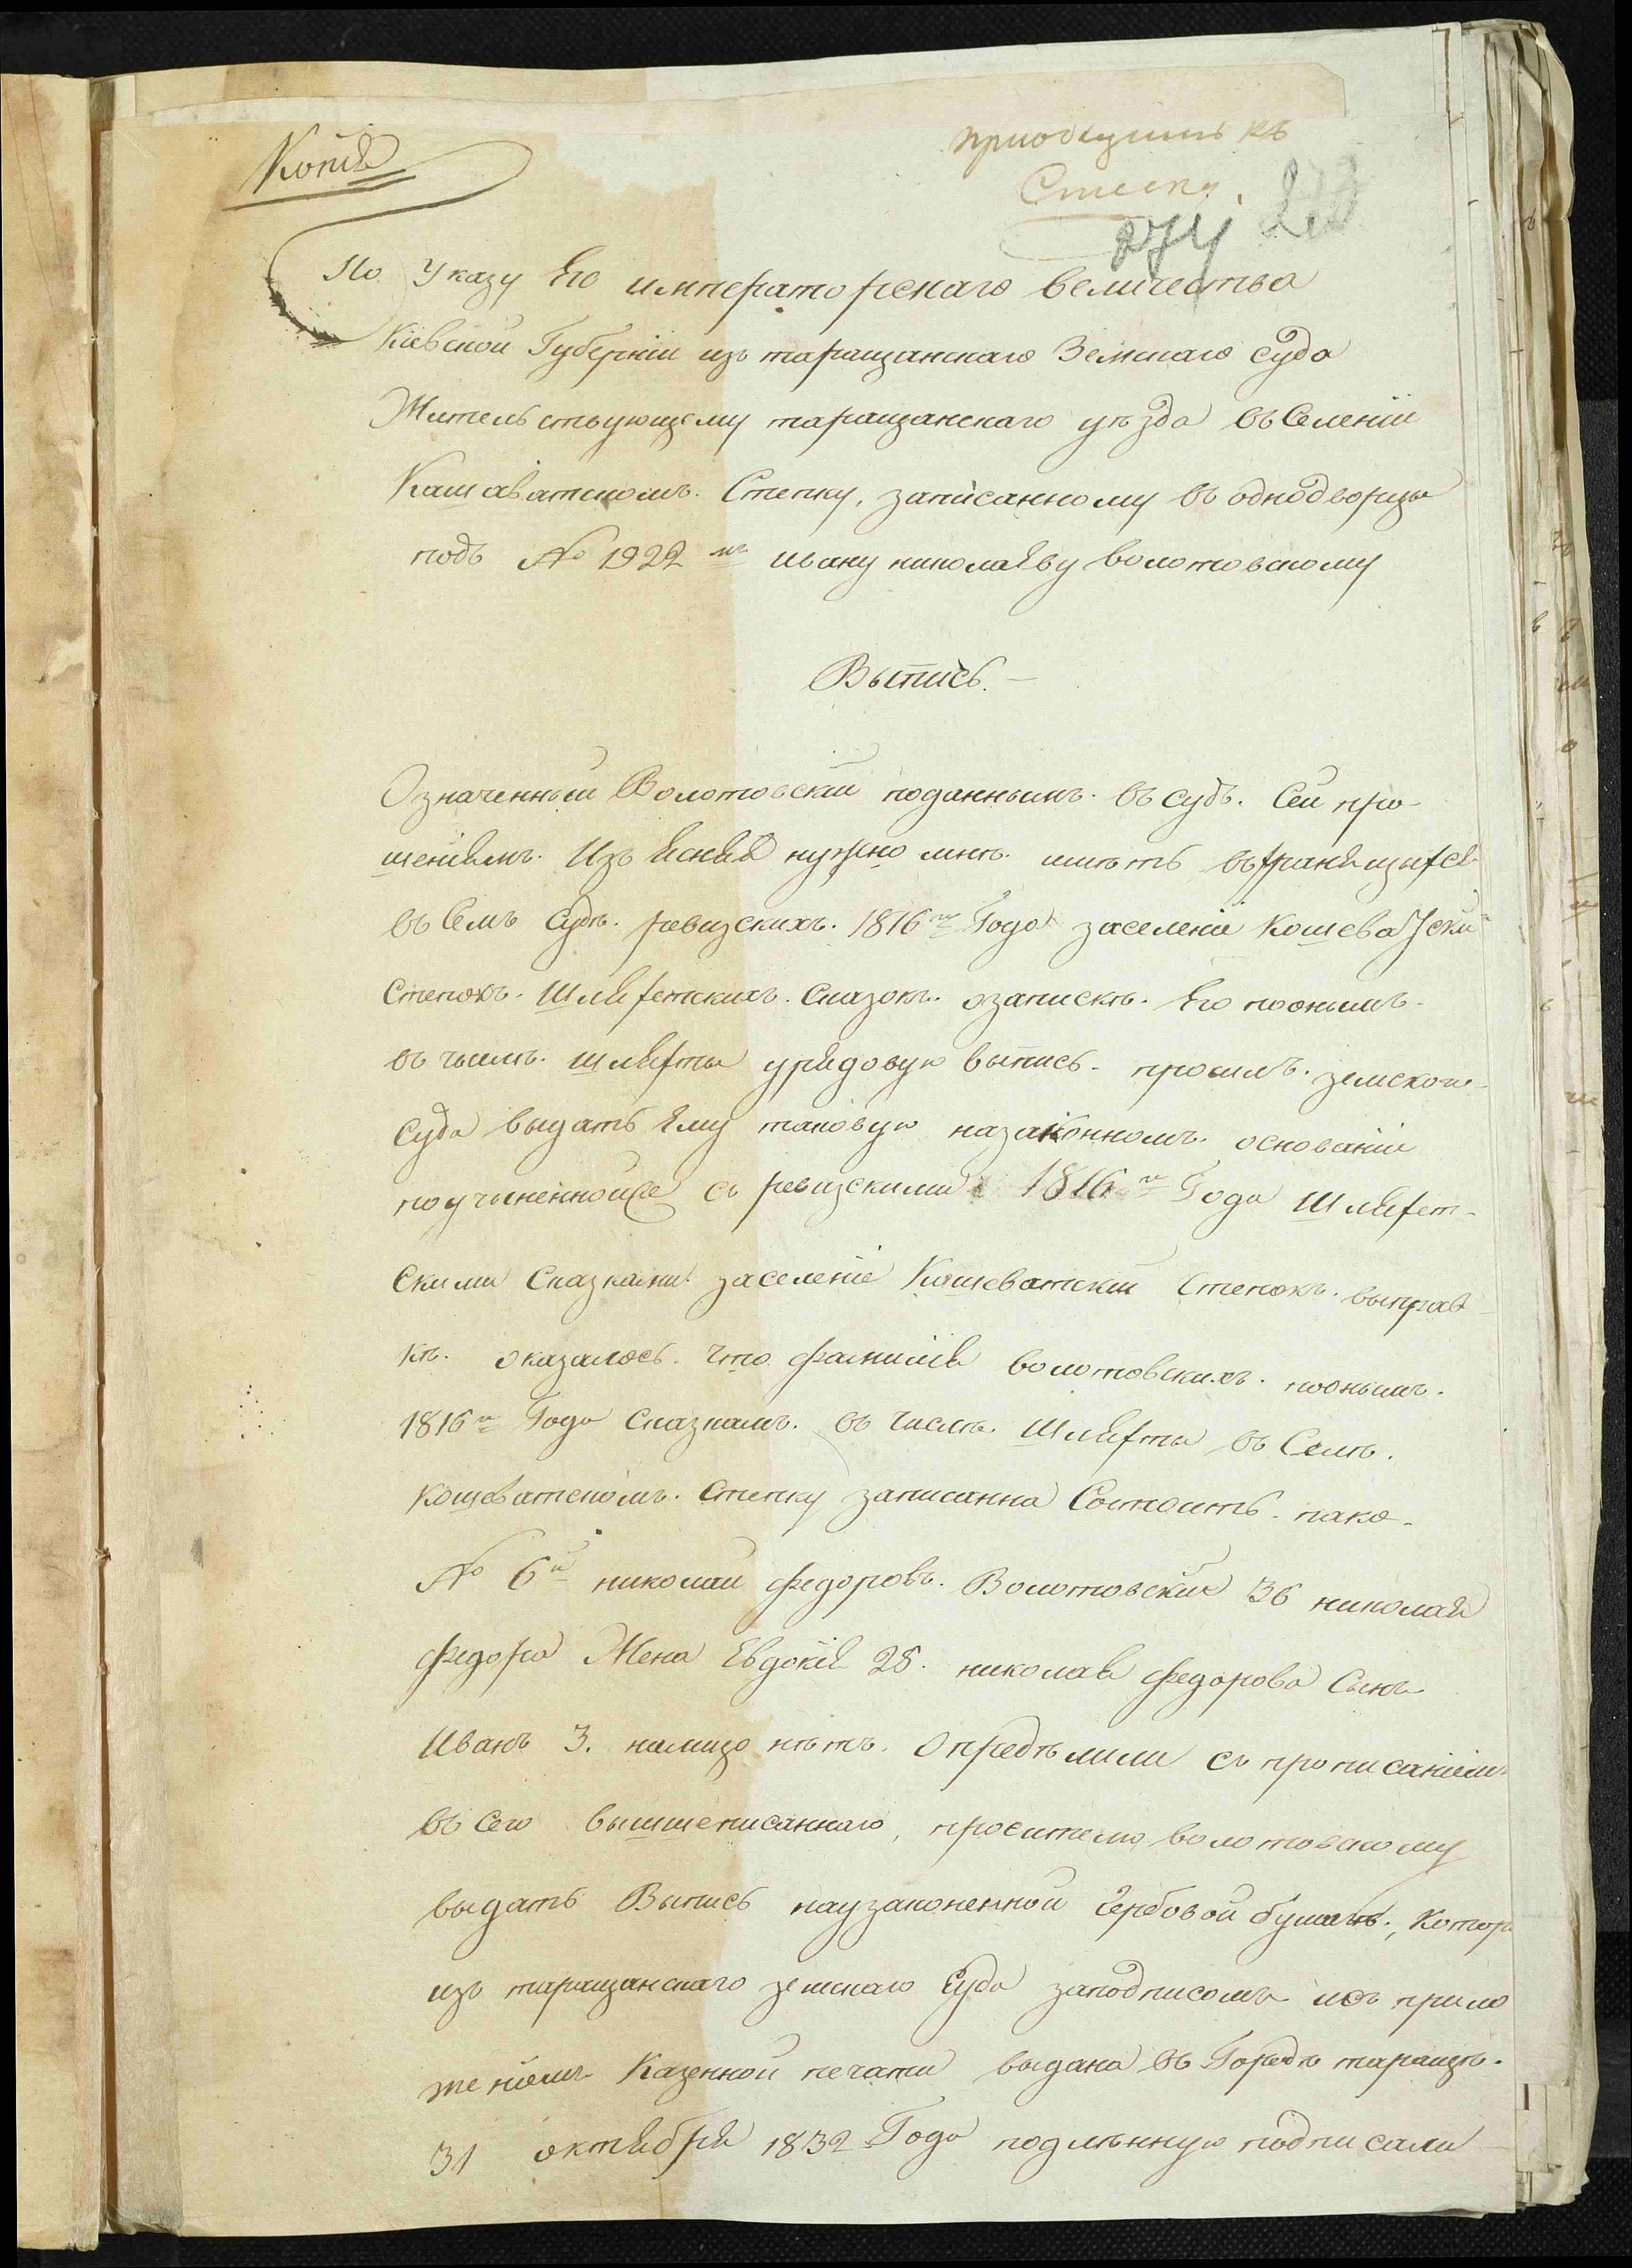 Копія
приобщить къ
Списку.
274
По Указу Его императорскаго величества
Кіевской Губерніи изъ таращанскаго Земскаго суда
Жительствующему таращанскаго уѣзда въ Селеніи
Кашаватскомъ. Степку, записанному въ однодворцы
подъ № 1922 мъ ивану николаеву волотовскому
Выпись.
Означенный Волотовскій поданнымъ. въ судъ. Сей про-
шеніямъ. Изъ ясняя нужно мнѣ. имѣть въ
въ Семъ Судѣ. ревизскихъ. 1816 го Года заселеніе Кошеватскій
Степокъ. Шляхетскихъ. Сказокъ. озапискѣ. Его поонымъ
въ числѣ. шляхты урядовую выпись. просилъ. земскаго
Суда выдать Ему таковую назаконномъ. основаніи
поучиненнойже съ ревизскими 1816 го Года Шляхет-
Скими Сказками заселеніе Кашеватскій Степокъ. выправ
кѣ. оказалось. что фамилія волотовскихъ. поонымъ.
1816 го Года Сказкамъ. въ числѣ. Шляхты въ Селѣ.
Кошеватскомъ. Степку записанна Состоитъ. тако-
№ 6 й николай федоровъ. Волотовскій 36 николая
федора Жена Евдокія 28. николая федорова Сынъ
Иванъ 3. налицо лѣтъ. Опредѣлили съ прописаніемъ
въ сего вышшеписаннаго, просителю волотовскому
выдать Выпись наузаконенной гербовой бумагѣ., Котор
изъ таращанскаго земскаго Суда заподписомъ исъ прило
женіемъ Казенной печати выдана въ Городѣ таращѣ.
31 октября 1832 Года подлѣнную подписали